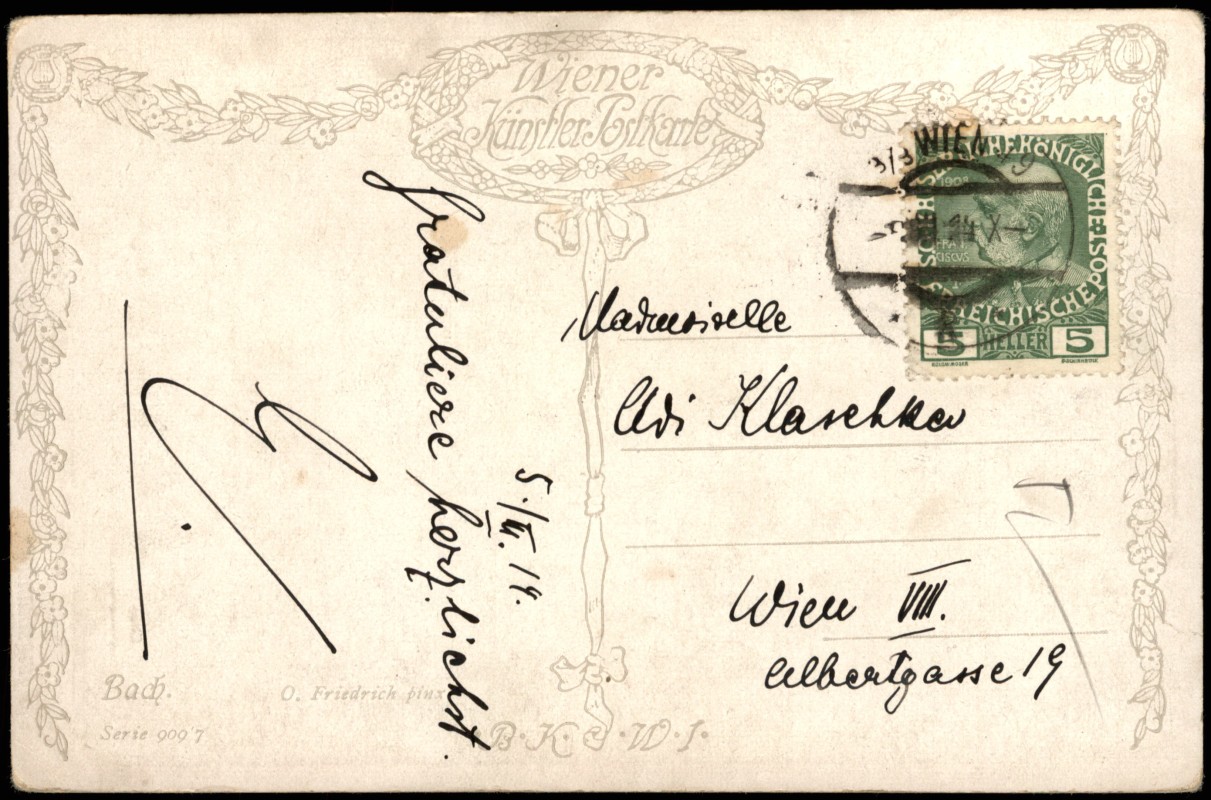 Wiener
Künstler Postkarte
WIEN
3/3
KAISERLICHE KÖNIGLICHE
ÖSTERREICHISCHE POST
1908
FRAN
CISCUS
5 HELLER 5
gratuliere herzlichst.
5./III. 14.
Mademoiselle
Adi Klaschka
Wien VIII.
Albertgasse 19
Bach.
O. Friedrich pinx
Serie 909 7
B·K·W·I·